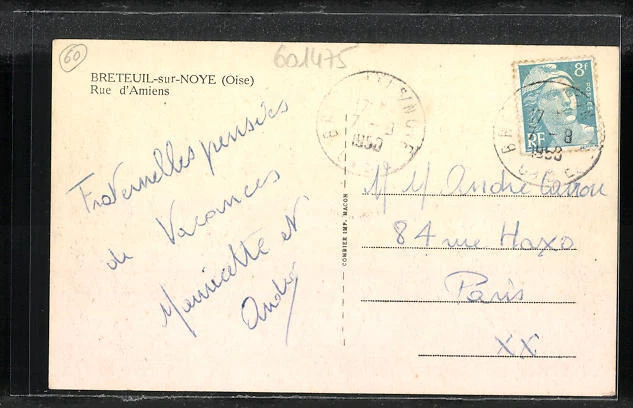 60
601475
BRETEUIL-sur-NOYE (Oise)
Rue d'Amiens
8f
POSTES
RF
17
7 - 8
1950
17
7 - 8
1950
Fraternelles pensées
de Vacances
Mauricette et
André
COMBIER IMP. MACON
M M André
84 rue Haxo
Paris
XX